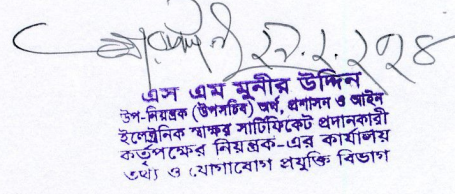 এস এম মুনীর উদ্দিন
উপ-নিয়ন্ত্রক (উপসচিব) অর্থ, প্রশাসন ও আইন
ইলেট্রনিক স্বাক্ষর সার্টিফিকেট প্রদানকারী
কর্তৃপক্ষের নিয়ন্ত্রক-এর কার্যালয়
তথ্য ও যোগাযোগ প্রযুক্তি বিভাগ